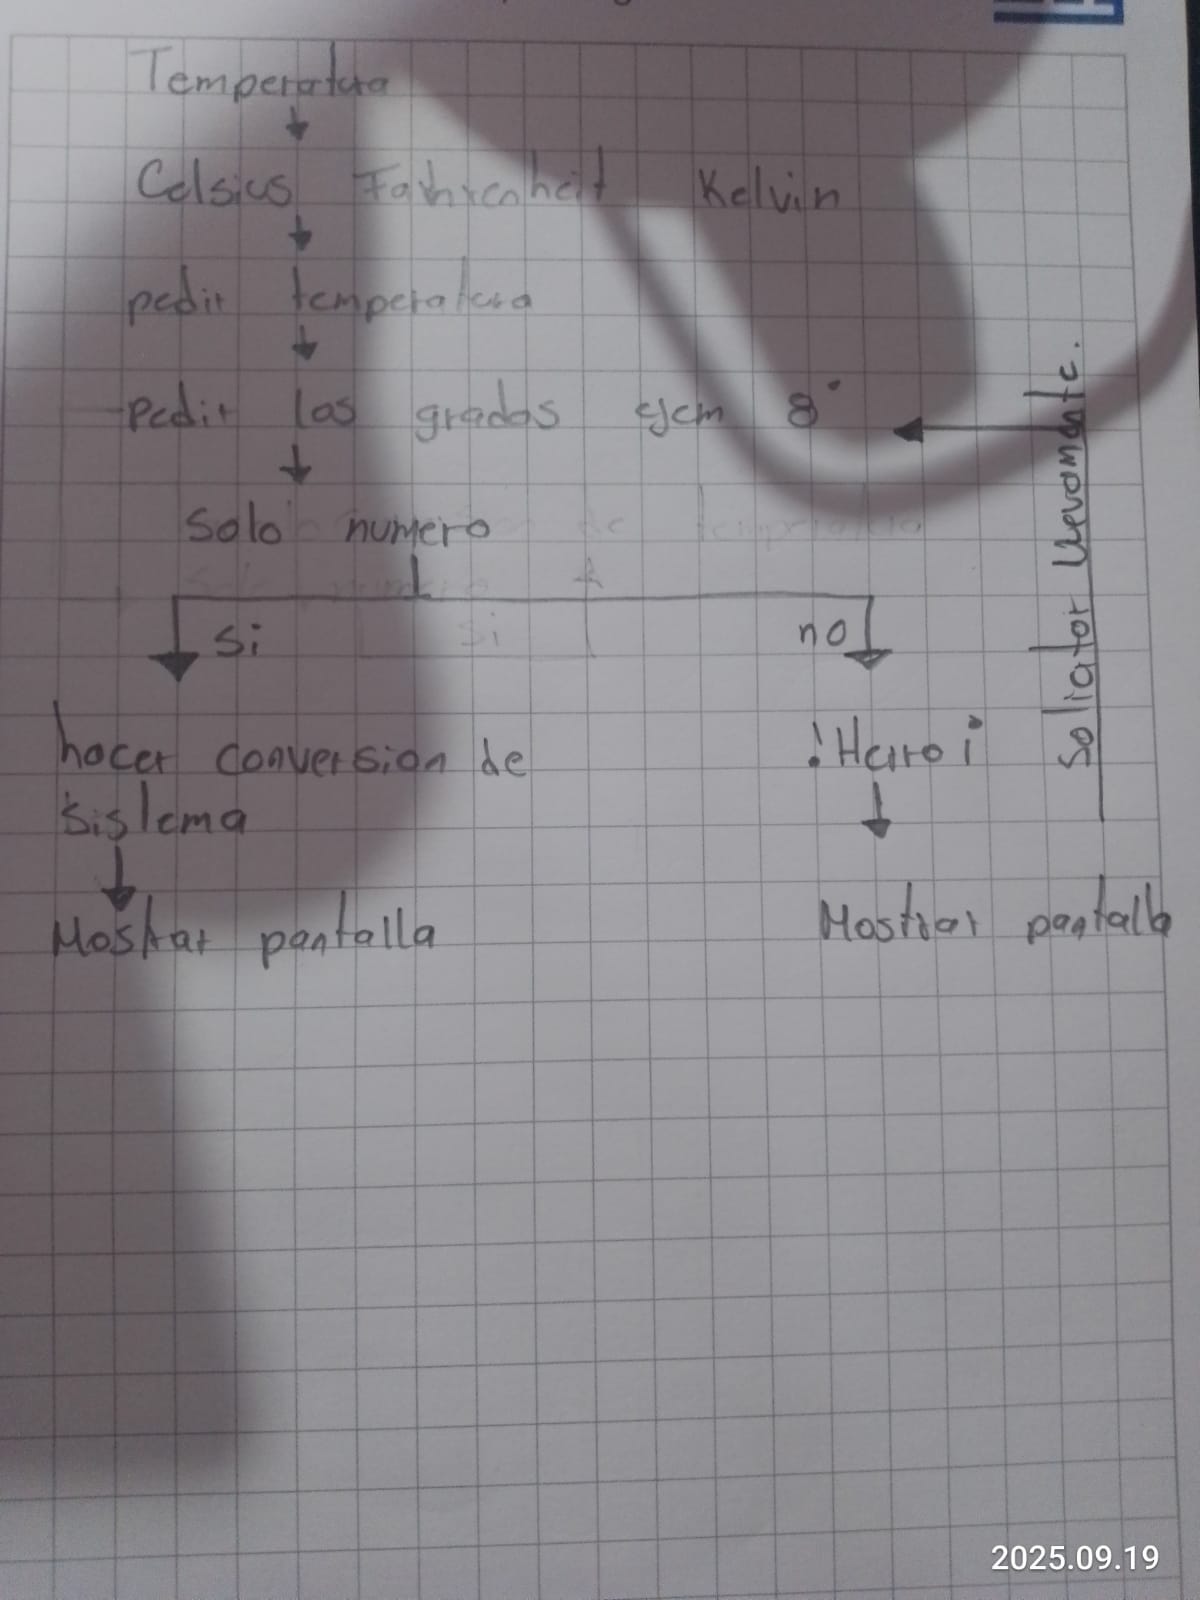 Temperatura
Celsius Fahrenheit Kelvin
pedir temperatura
Pedir los grados ejem 8°
Solo numero
si no
hacer conversion de
sistema
!Herro¡
Mostrar pantalla
Mostrar pantalla
Soliator Uevomente.
2025.09.19